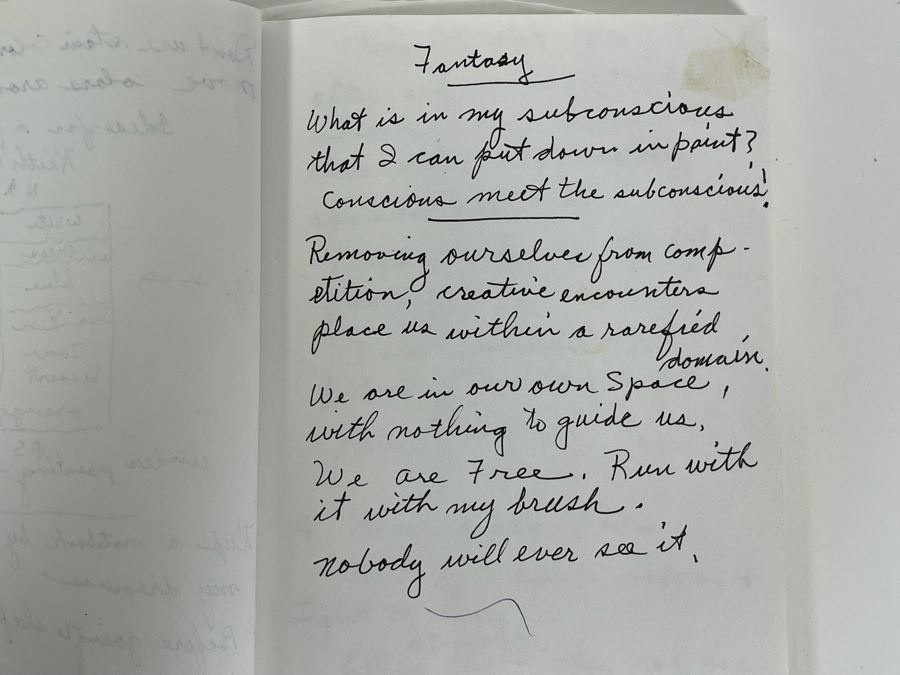 Fantasy
What is in my subconscious
that I can put down in paint?
Conscious meet the subconscious!
Removing ourselves from comp-
etition, creative encounters
place us within a rarefied
domain.
We are in our own Space,
with nothing to guide us.
We are Free. Run with
it with my brush.
nobody will ever see it.